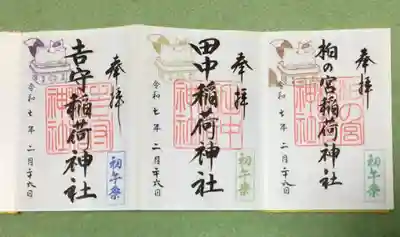 奉拝
柏の宮稲荷神社
令和七年 二月
初午祭
奉拝
田中稲荷神社
令和七年 二月
初午祭
奉拝
吉守稲荷神社
令和七年 二月
初午祭